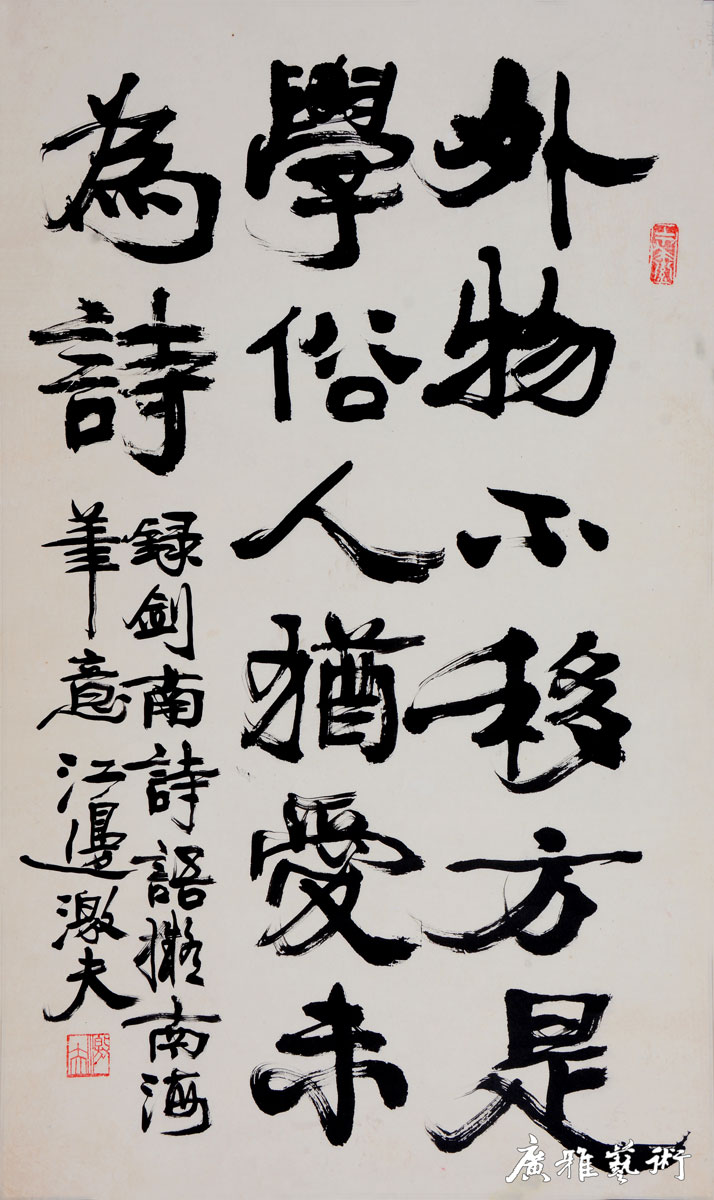 外物不移方是
學俗人猶愛未
為詩
録劍南詩語擬南海
筆意 江邊激夫
廣雅藝術